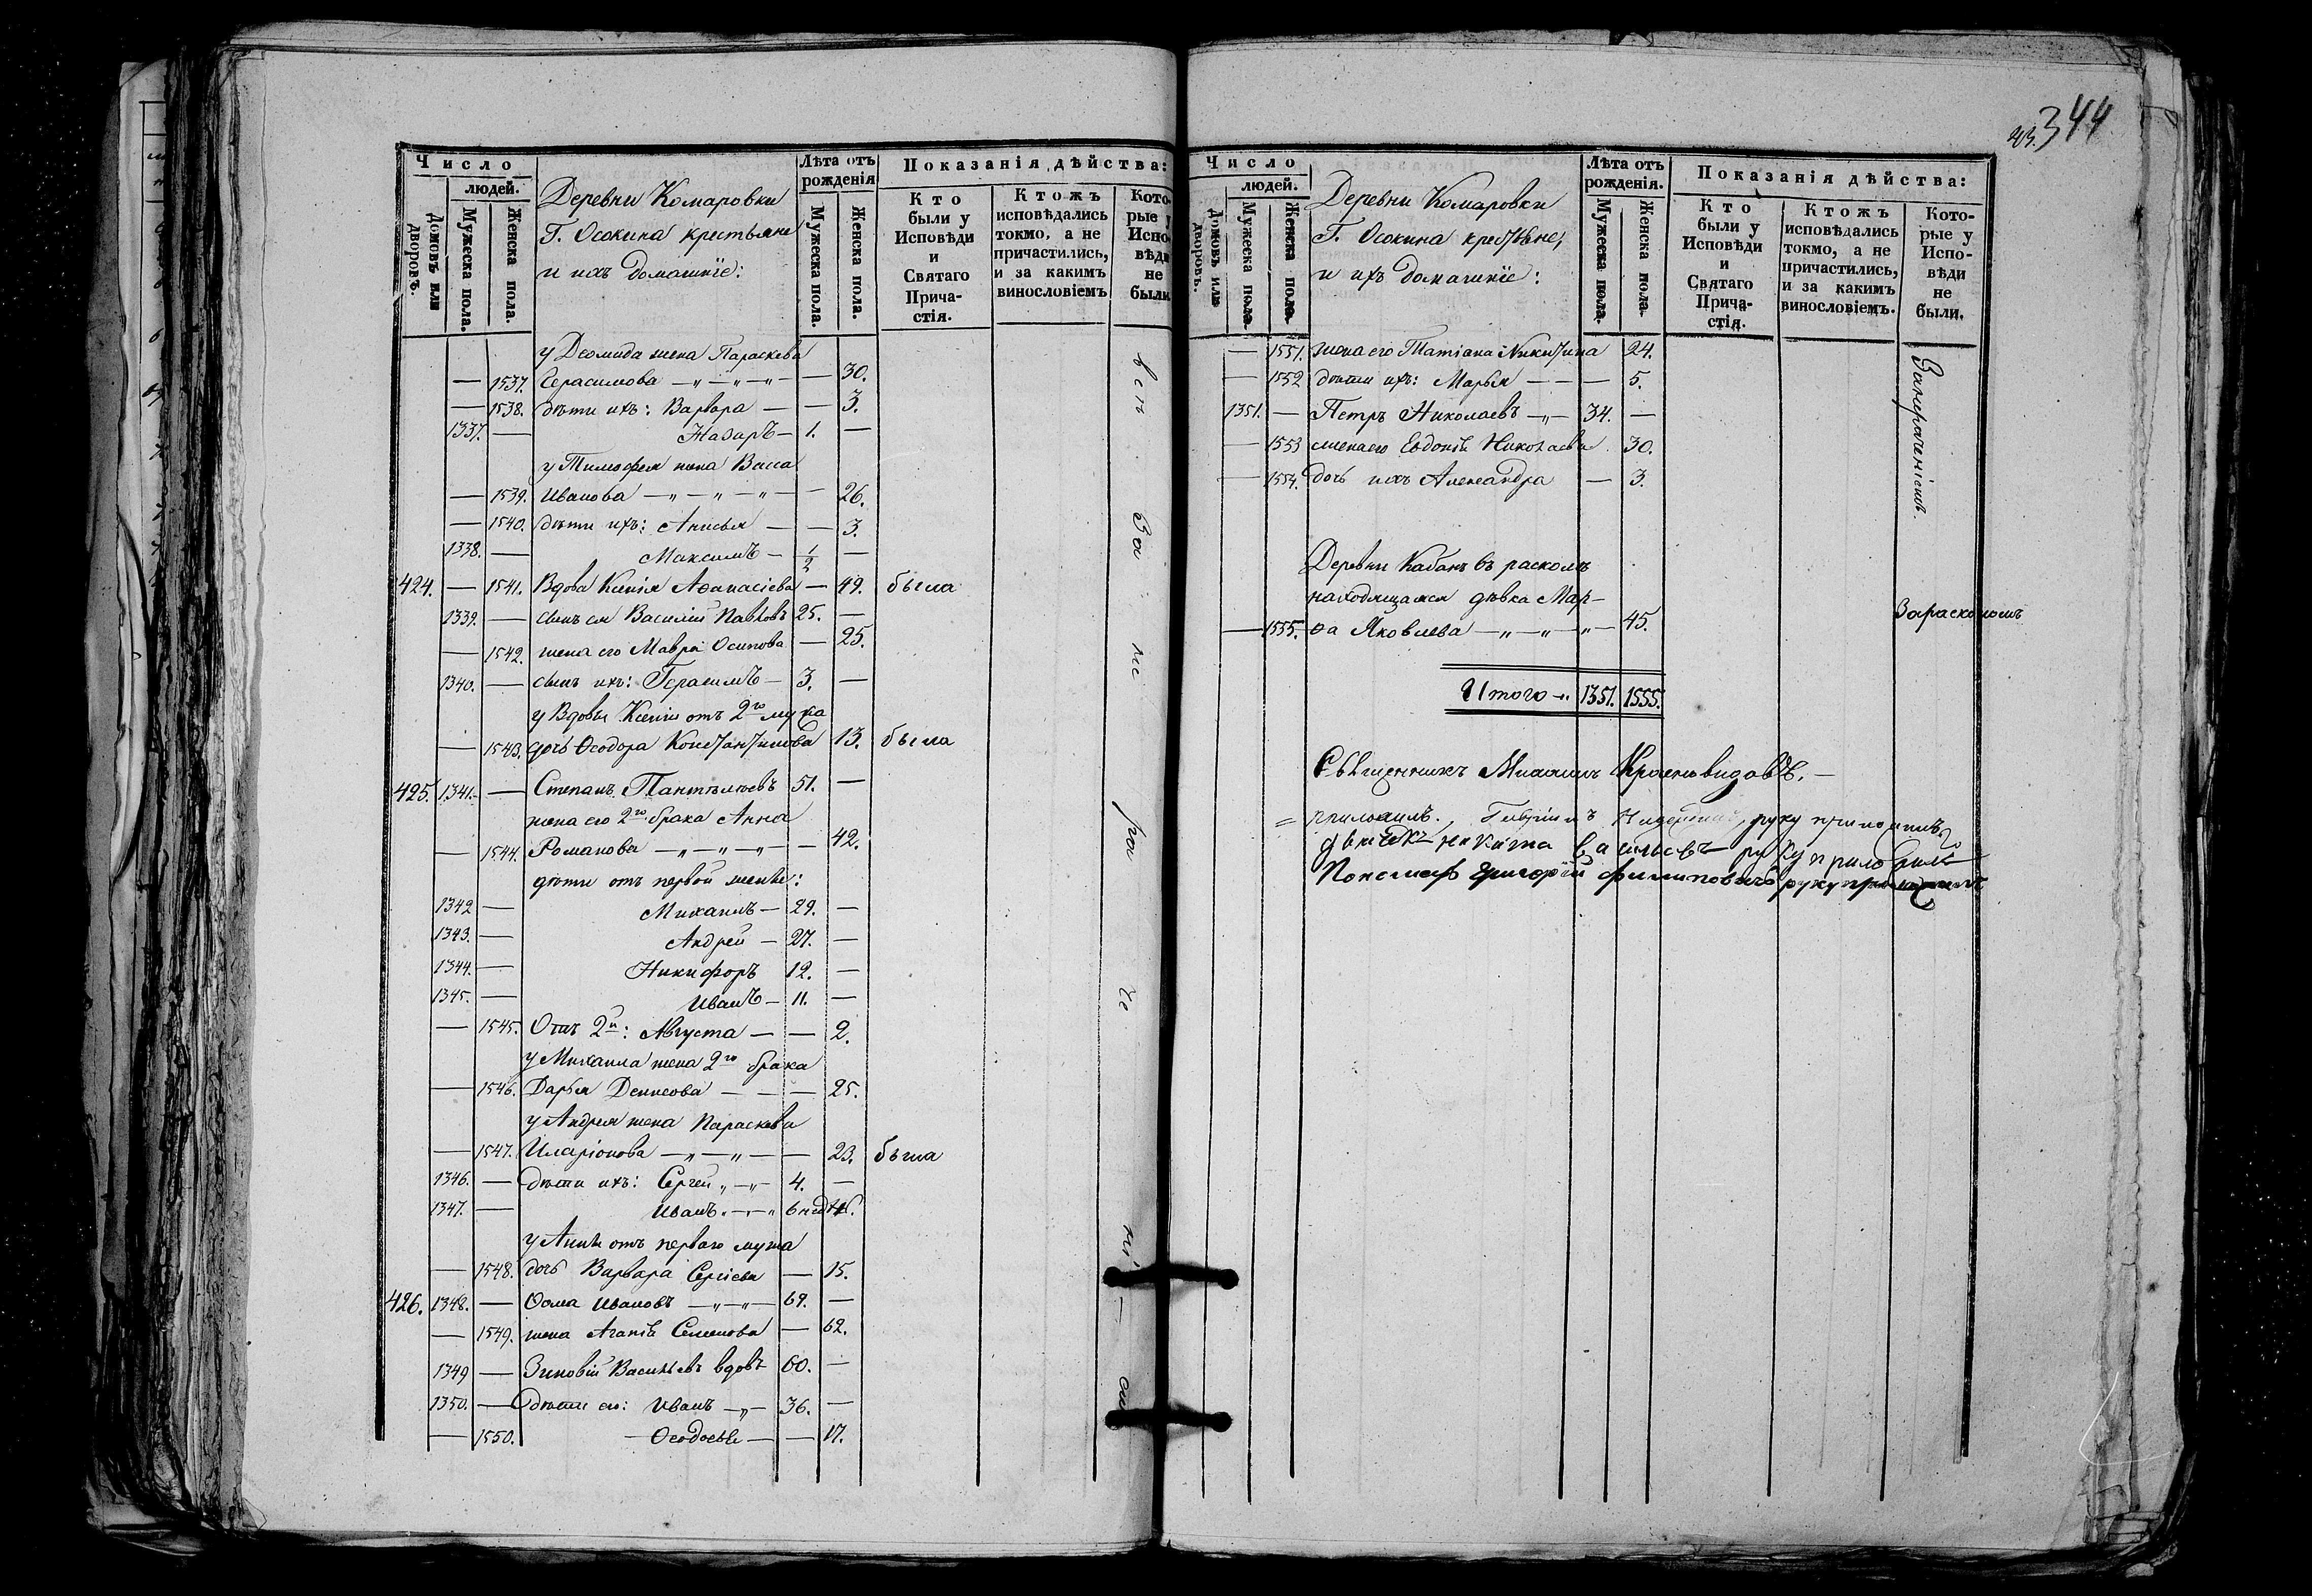 Число
людей.
Домовъ или дворовъ.
Мужеска пола.
Женска пола.
Деревни Комаровки
Г. Осокина крестьяне
и ихъ домашніе:
Лѣта отъ
рожденія
Мужеска пола.
Женска пола.
Показанія дѣйства:
Кто
были у
Исповѣди
и
Святаго
Прича-
стія.
Ктожъ
исповѣдались
токмо, а не
причастились,
и за какимъ
винословіемъ
Кото-
рые у
Испо-
вѣди
не
были
у Деомида жена Параскева
— 1537. Герасимова — „ — „ — „ — — 30.
— 1538. дѣти ихъ: Варвара — — 3.
1337. — Назаръ — 1. —
у Тимофея жена Васса
— 1539. Иванова — „ — „ — „ — — 26.
— 1540. дѣти ихъ: Анисья — — 3.
1338. — Максимъ — 1/2 —
424. — 1541. Вдова Ксенія Аѳанасіева — 49. была
1339. — сынъ ея Василій Павловъ 25. —
— 1542. жена его Мавра Осипова — 25.
1340. — сынъ ихъ: Герасимъ — 3. —
у Вдовы Ксеніи отъ 2го мужа
— 1543. дочь Ѳеодора Константинова 13. была
425. 1341. — Степанъ Пантелеевъ 51. —
жена его 2го брака Анна
— 1544. Романова — „ — „ — „ — — 42.
дѣти отъ первой жены:
1342 — Михаилъ — 29. —
1343. — Андрей — 27. —
1344. — Никифоръ 12. —
1345. — Иванъ — 11. —
— 1545. Отъ 2й: Августа — — 2.
у Михаила жена 2го брака
— 1546. Дарья Денисова — — — 25.
у Андрея жена Параскева
— 1547. Иларіонова — „ — „ — — 23. была
1346. — дѣти ихъ: Сергей „ — „ — 4. —
1347. — Иванъ „ — „ — „ 6 недѣль.
у Анны отъ перваго мужа
— 1548. дочь Варвара Сергіева — 15.
426. 1348. — Ѳома Ивановъ — „ — „ — 69. —
— 1549. жена Агапія Семенова — 62.
1349 — Зиновій Васильевъ вдовъ 60. —
1350. — дѣти его: Иванъ — „ — 36. —
— 1550. — Ѳеодосья — — 17.
всѣ за не ра че ні — ем
43. 344
Число
людей.
Домовъ или дворовъ.
Мужеска пола.
Женска пола.
Деревни Комаровки
Г. Осокина крестьяне,
и ихъ домашніе:
Лѣта отъ
рожденія.
Мужеска пола.
Женска пола.
Показанія дѣйства:
Кто
были у
Исповѣди
и
Святаго
Прича-
стія.
Ктожъ
исповѣдались
токмо, а не
причастились,
и за какимъ
винословіемъ.
Кото-
рые у
Испо-
вѣди
не
были.
— 1551. жена его Татіана Никитина 24.
— 1552 дѣти ихъ: Марья — — — 5.
1351. — Петръ Николаевъ — „ — 34. —
— 1553 жена его Евдокія Николаева 30.
— 1554. дочь ихъ Александра — 3.
Занераченіемъ.
Деревни Кабанъ въ расколѣ
находящаяся дѣвка Мар-
— 1555. ѳа Яковлева — „ — „ — „ — 45. За расколомъ
Итого — „ 1351. 1555.
Священникъ Михаилъ Красновидовъ. —
руку приложилъ
дьячекъ никита васильевъ руку приложилъ
Пономарь Григорій филиповичъ руку приложилъ